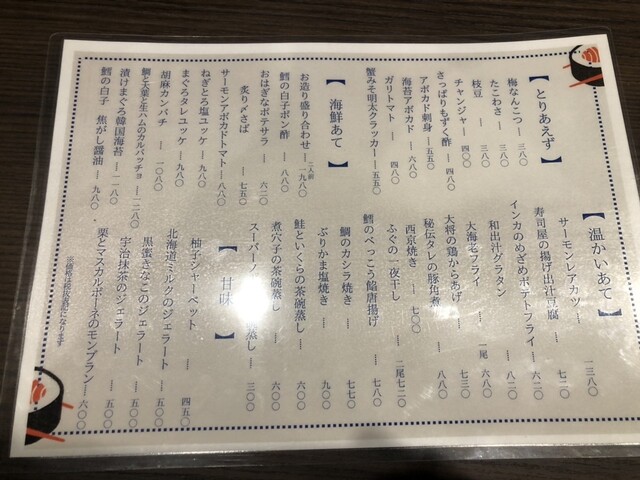 【とりあえず】
梅なんこつ ― 三八〇
たこわさ ― 三八〇
枝豆 ― 三八〇
チャンジャ ― 四〇〇
さっぱりもずく酢 ― 四八〇
アボカド刺身 ― 五五〇
海苔アボカド ― 六八〇
ガリトマト ― 四八〇
蟹みそ明太クラッカー ― 五五〇
【海鮮あて】
お造り盛り合わせ ― 二人前 一九八〇
鱈の白子ポン酢 ― 八八〇
おはぎなポテサラ ― 六二〇
炙り〆さば ― 七五〇
サーモンアボカドトマト ― 八八〇
ねぎとろ塩ユッケ ― 九八〇
まぐろタレユッケ ― 九八〇
胡麻カンパチ ― 一〇八〇
鯛と大葉と生ハムのカルパッチョ ― 一二八〇
漬けまぐろ韓国海苔 ― 一一八〇
鱈の白子 焦がし醤油 ― 九八〇
【温かいあて】
サーモンレアカツ … 一三八〇
寿司屋の揚げ出汁豆腐 … 七二〇
インカのめざめポテトフライ … 六二〇
和出汁グラタン … 八二〇
大海老フライ … 一尾 六八〇
大将の鶏からあげ … 七三〇
秘伝タレの豚角煮 … 八八〇
西京焼き … 七〇〇
ふぐの一夜干し … 二尾七二〇
鱈のべっこう餡唐揚げ … 七八〇
鯛のカシラ焼き … 七七〇
ぶりかま塩焼き … 九〇〇
鮭といくらの茶碗蒸し … 六〇〇
煮穴子の茶碗蒸し … 六〇〇
蒸し … 三〇〇
【甘味】
柚子シャーベット … 四五〇
北海道ミルクのジェラート … 五〇〇
黒蜜きなこのジェラート … 五〇〇
宇治抹茶のジェラート … 五〇〇
栗とマスカルポーネのモンブラン … 六〇〇
※価格は税抜表記になります